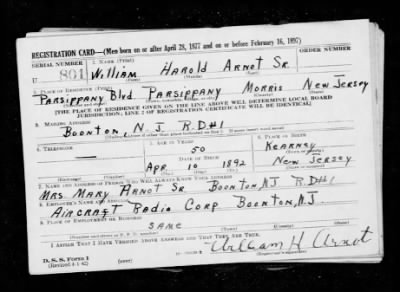 REGISTRATION CARD—(Men born on or after April 28, 1877 and on or before February 16, 1897)
SERIAL NUMBER 1. NAME (Print) ORDER NUMBER
U 801 William Harold Arnot Sr.
(First) (Middle) (Last)
2. PLACE OF RESIDENCE (Print)
Parsippany Blvd Parsippany Morris New Jersey
[THE PLACE OF RESIDENCE GIVEN ON THE LINE ABOVE WILL DETERMINE LOCAL BOARD
JURISDICTION; LINE 2 OF REGISTRATION CERTIFICATE WILL BE IDENTICAL]
3. MAILING ADDRESS
Boonton, N.J R.D#1
4. TELEPHONE 5. AGE IN YEARS 6. PLACE OF BIRTH
50 Kearney
DATE OF BIRTH
— Apr. 10 1892 New Jersey
7. NAME AND ADDRESS OF PERSON WHO WILL ALWAYS KNOW YOUR ADDRESS
Mrs. Mary Arnot Sr. Boonton, N.J R.D#1
8. EMPLOYER'S NAME AND ADDRESS
Aircraft Radio Corp Boonton, N.J.
9. PLACE OF EMPLOYMENT OR BUSINESS
same
I AFFIRM THAT I HAVE VERIFIED ABOVE ANSWERS AND THAT THEY ARE TRUE.
D. S. S. Form 1
(Revised 4-1-42) (over) William H Arnot